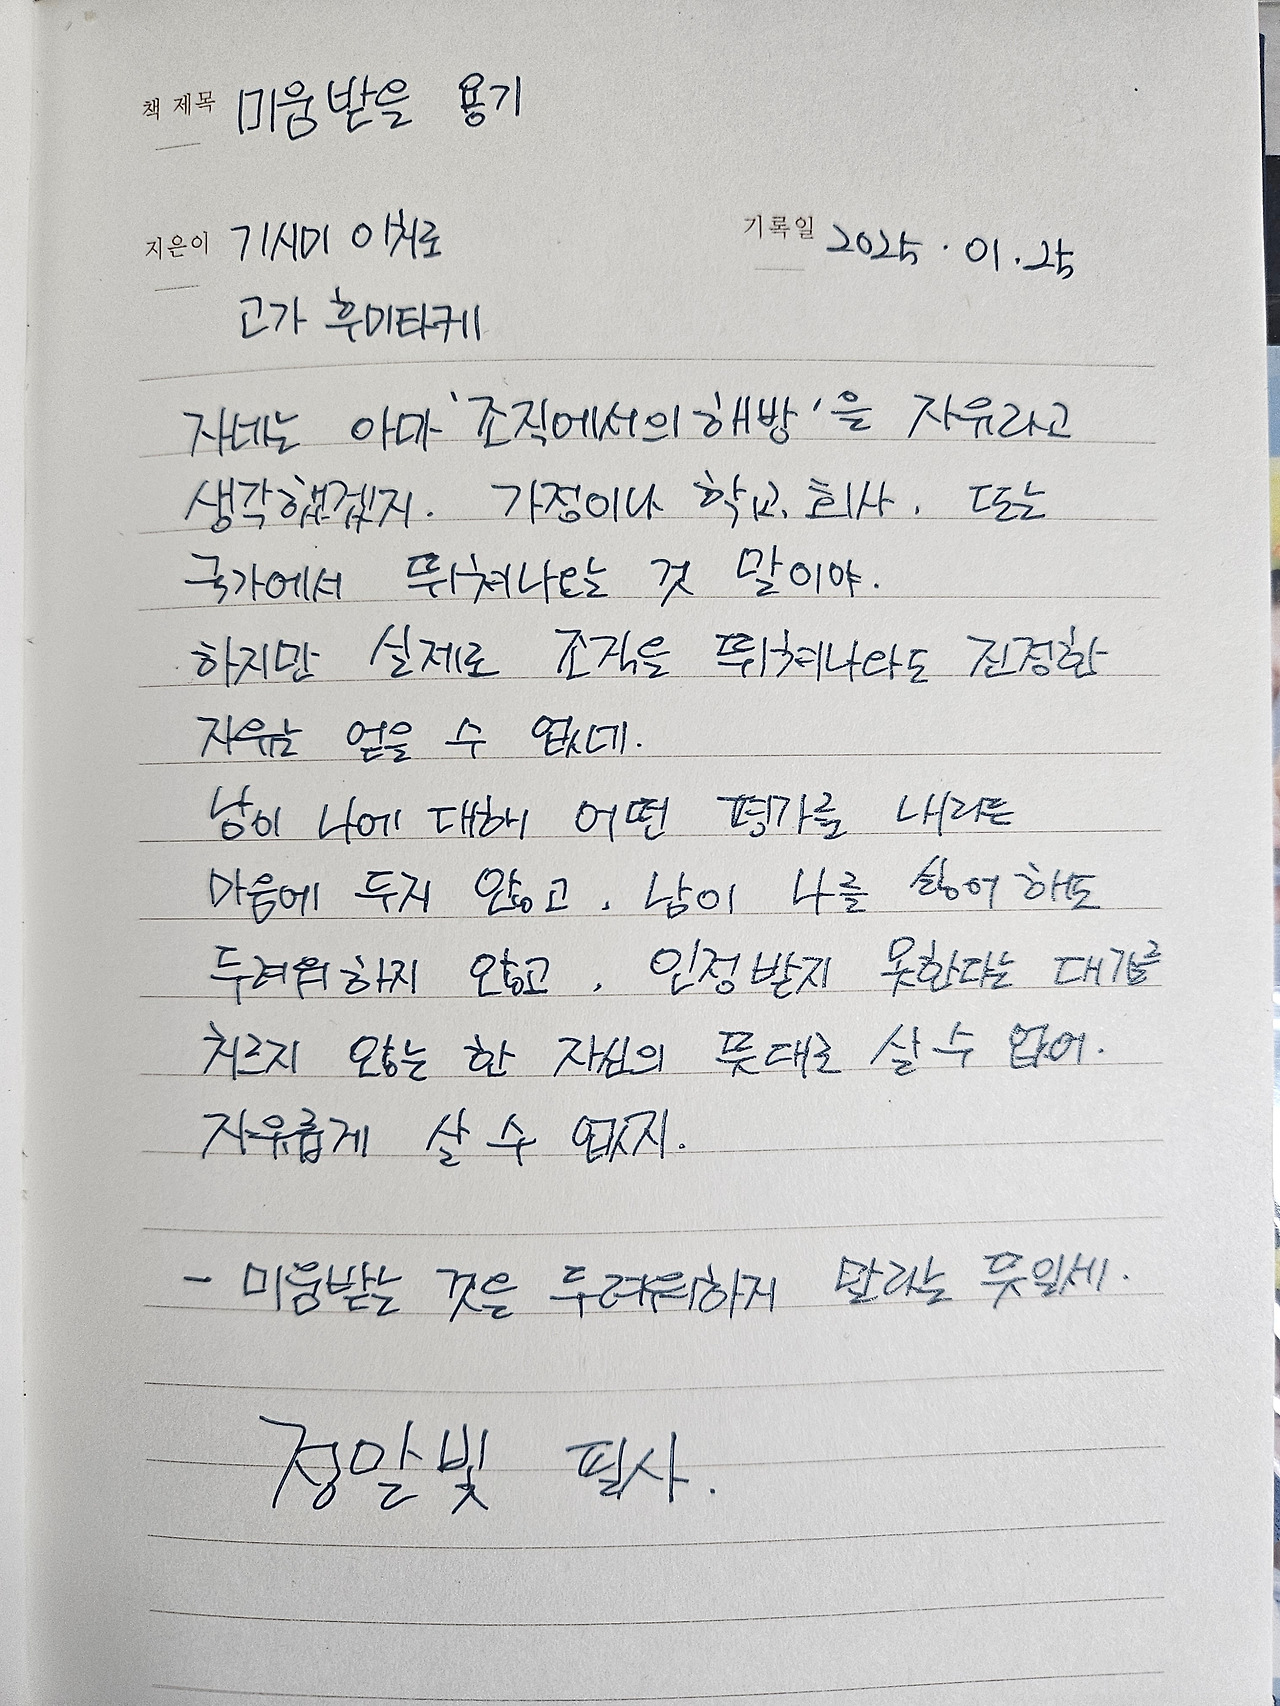 책 제목 미움받을 용기
지은이 기시미 이치로
기록일 2025.01.25
고가 후미타케
자네는 아마 '조직에서의 해방'을 자유라고
생각했겠지. 가정이나 학교, 회사, 또는
국가에서 뛰쳐나오는 것 말이야.
하지만 실제로 조직을 뛰쳐나와도 진정한
자유는 얻을 수 없다네.
남이 나에 대해 어떤 평가를 내리든
마음에 두지 않고, 남이 나를 싫어해도
두려워하지 않고, 인정받지 못한다는 대가를
치르지 않는 한 자신의 뜻대로 살 수 없어.
자유롭게 살 수 없지.
- 미움받는 것을 두려워하지 말라는 뜻일세.
정말빛 필사.